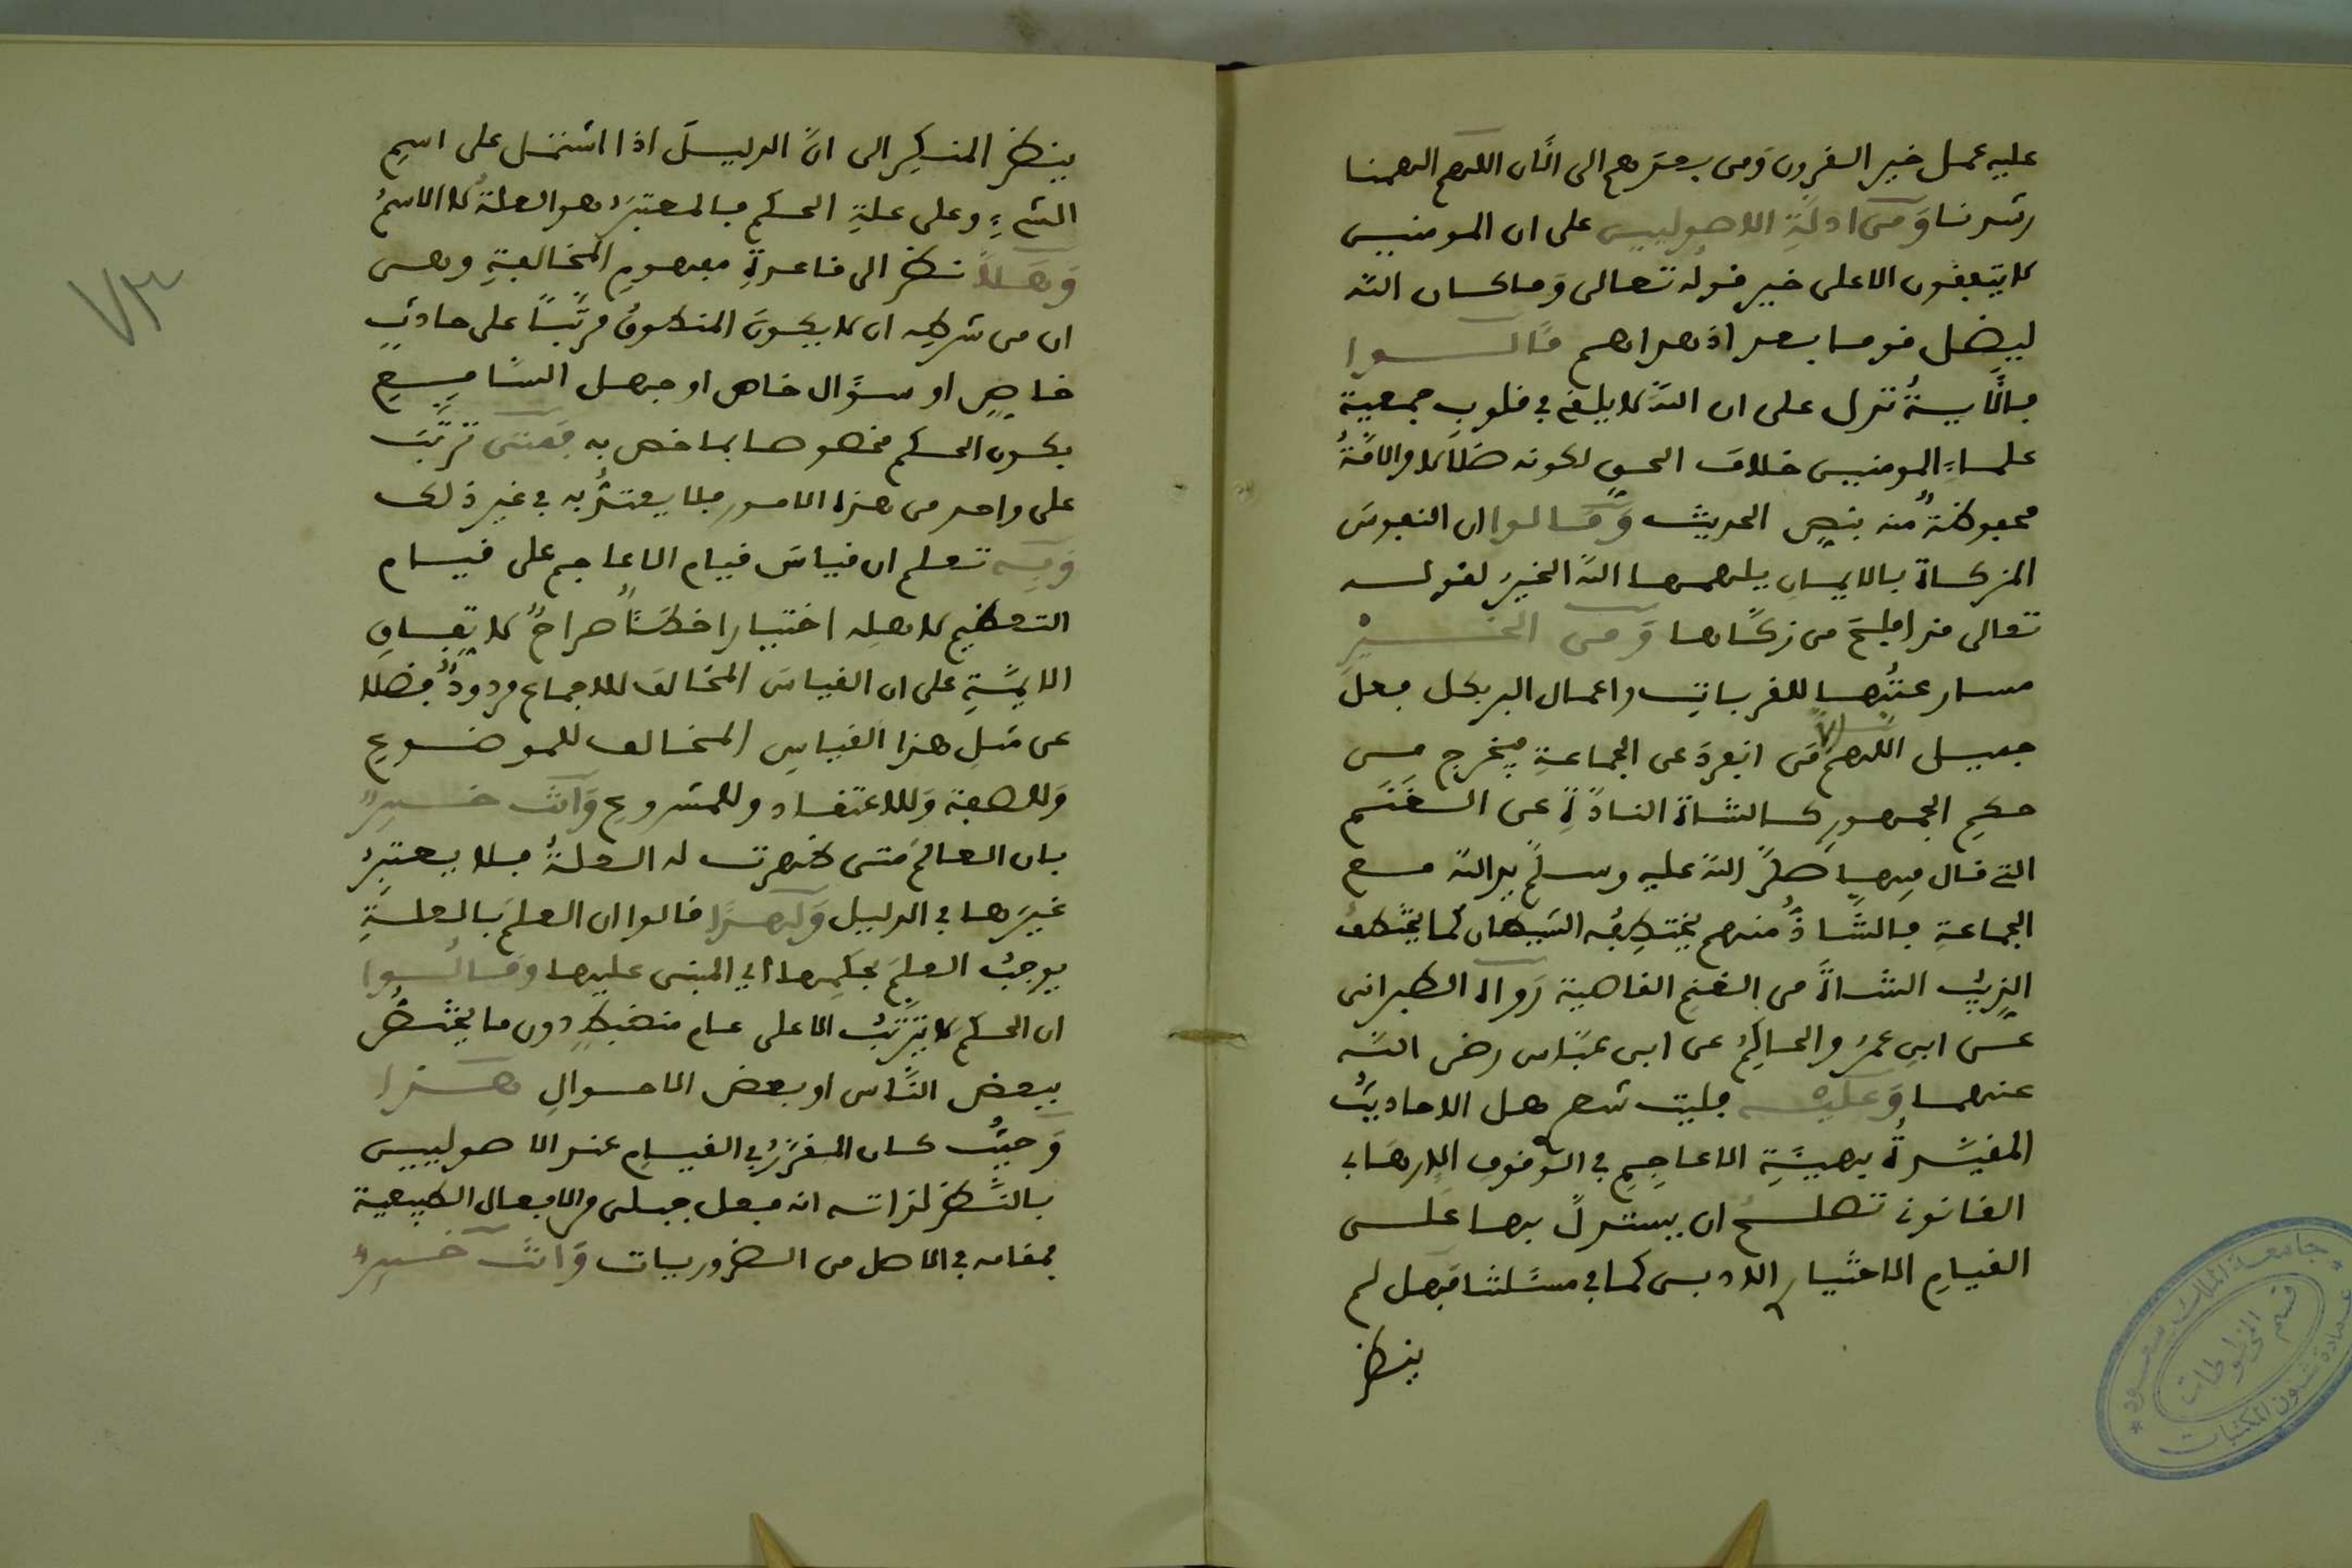 عليه عمل خير القرون ومن بعدهم الى الآن اللهم الهمنا
رشدنا ومن ادلة الاصوليين على ان المومنين
لا يتفقون الا على خير قوله تعالى وما كان الله
ليضل قوما بعد اذ هداهم قالوا
فالآية تدل على ان الله لا يلقي في قلوب جميعية
علماء المومنين خلاف الحق لكونه ضلالا والامة
محفوظة منه بنص الحديث وقالوا ان النفوس
المزكاة بالايمان يلهمها الله الخير لقوله
تعالى قد افلح من زكاها ومن الخير
مسارعتها للقربات واعمال البر بكل فعل
جميل اللهم الا من انفرد عن الجماعة فيخرج من
حكم الجمهور كالشاة النادة عن الغنم
التي قال فيها صلى الله عليه وسلم يد الله مع
الجماعة فالشاذ منهم يختطفه الشيطان كما يختطف
الذيب الشاة من الغنم القاصية رواه الطبراني
عن ابن عمر والحاكم عن ابن عباس رضي الله
عنهما وعليه فليت شعر هل الاحاديث
المقيدة بهيئة الاعاجم في الوقوف الارهابي
القانوني تصلح ان يستدل بها على
القيام الاختيار الادبي كما في مسئلتنا فهل لم
ينظر
ينظر المنكر الى ان الدليل اذا اشتمل على اسم
الشيء وعلى علة الحكم فالمعتبر هو العلة لا الاسم
وهلا نظر الى قاعدة مفهوم المخالفة وهي
ان من شرطه ان لا يكون المنطوق مرتبا على حادث
خاص او سؤال خاص او جهل السامع
بكون الحكم مخصوصا بما خص به فمتى ترتب
على واحد من هذه الامور فلا يعتد به في غير ذلك
وبه تعلم ان قياس قيام الاعاجم على قيام
التعظيم لاهله اختيارا خطأ صراح لاتفاق
الايمة على ان القياس المخالف للاجماع مردود فضلا
عن مثل هذا القياس المخالف للموضوع
وللصفة وللاعتقاد وللمشروع وانت خبير
بان العالم متى ظهرت له العلة فلا يعتبر
غيرها في الدليل ولهذا قالوا ان العلم بالعلة
يوجب العلم بحكمها اي المبنى عليها وقالوا
ان الحكم لا يترتب الا على عام منضبط دون ما يختص
ببعض الناس او بعض الاحوال هذا
وحيث كان المقرر في القيام عند الاصوليين
بالنظر لذاته انه فعل جبلى والافعال الطبيعية
بمقامه في الاصل من الضروريات وانت خبير
٧٣
جامعة الملك سعود
عمادة شؤون المكتبات
قسم المخطوطات